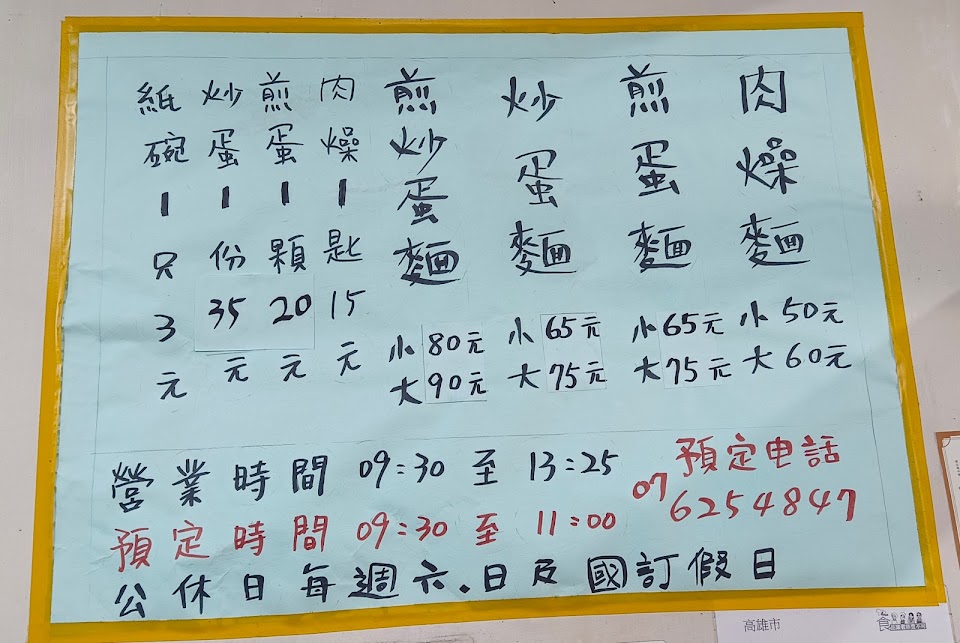 肉燥麵
小50元
大60元
煎蛋麵
小65元
大75元
炒蛋麵
小65元
大75元
煎炒蛋麵
小80元
大90元
肉燥1匙15元
煎蛋1顆20元
炒蛋1份35元
紙碗1只3元
營業時間 09:30 至 13:25
預定時間 09:30 至 11:00
預定电話
07 6254847
公休日每週六.日及國訂假日
高雄市
食